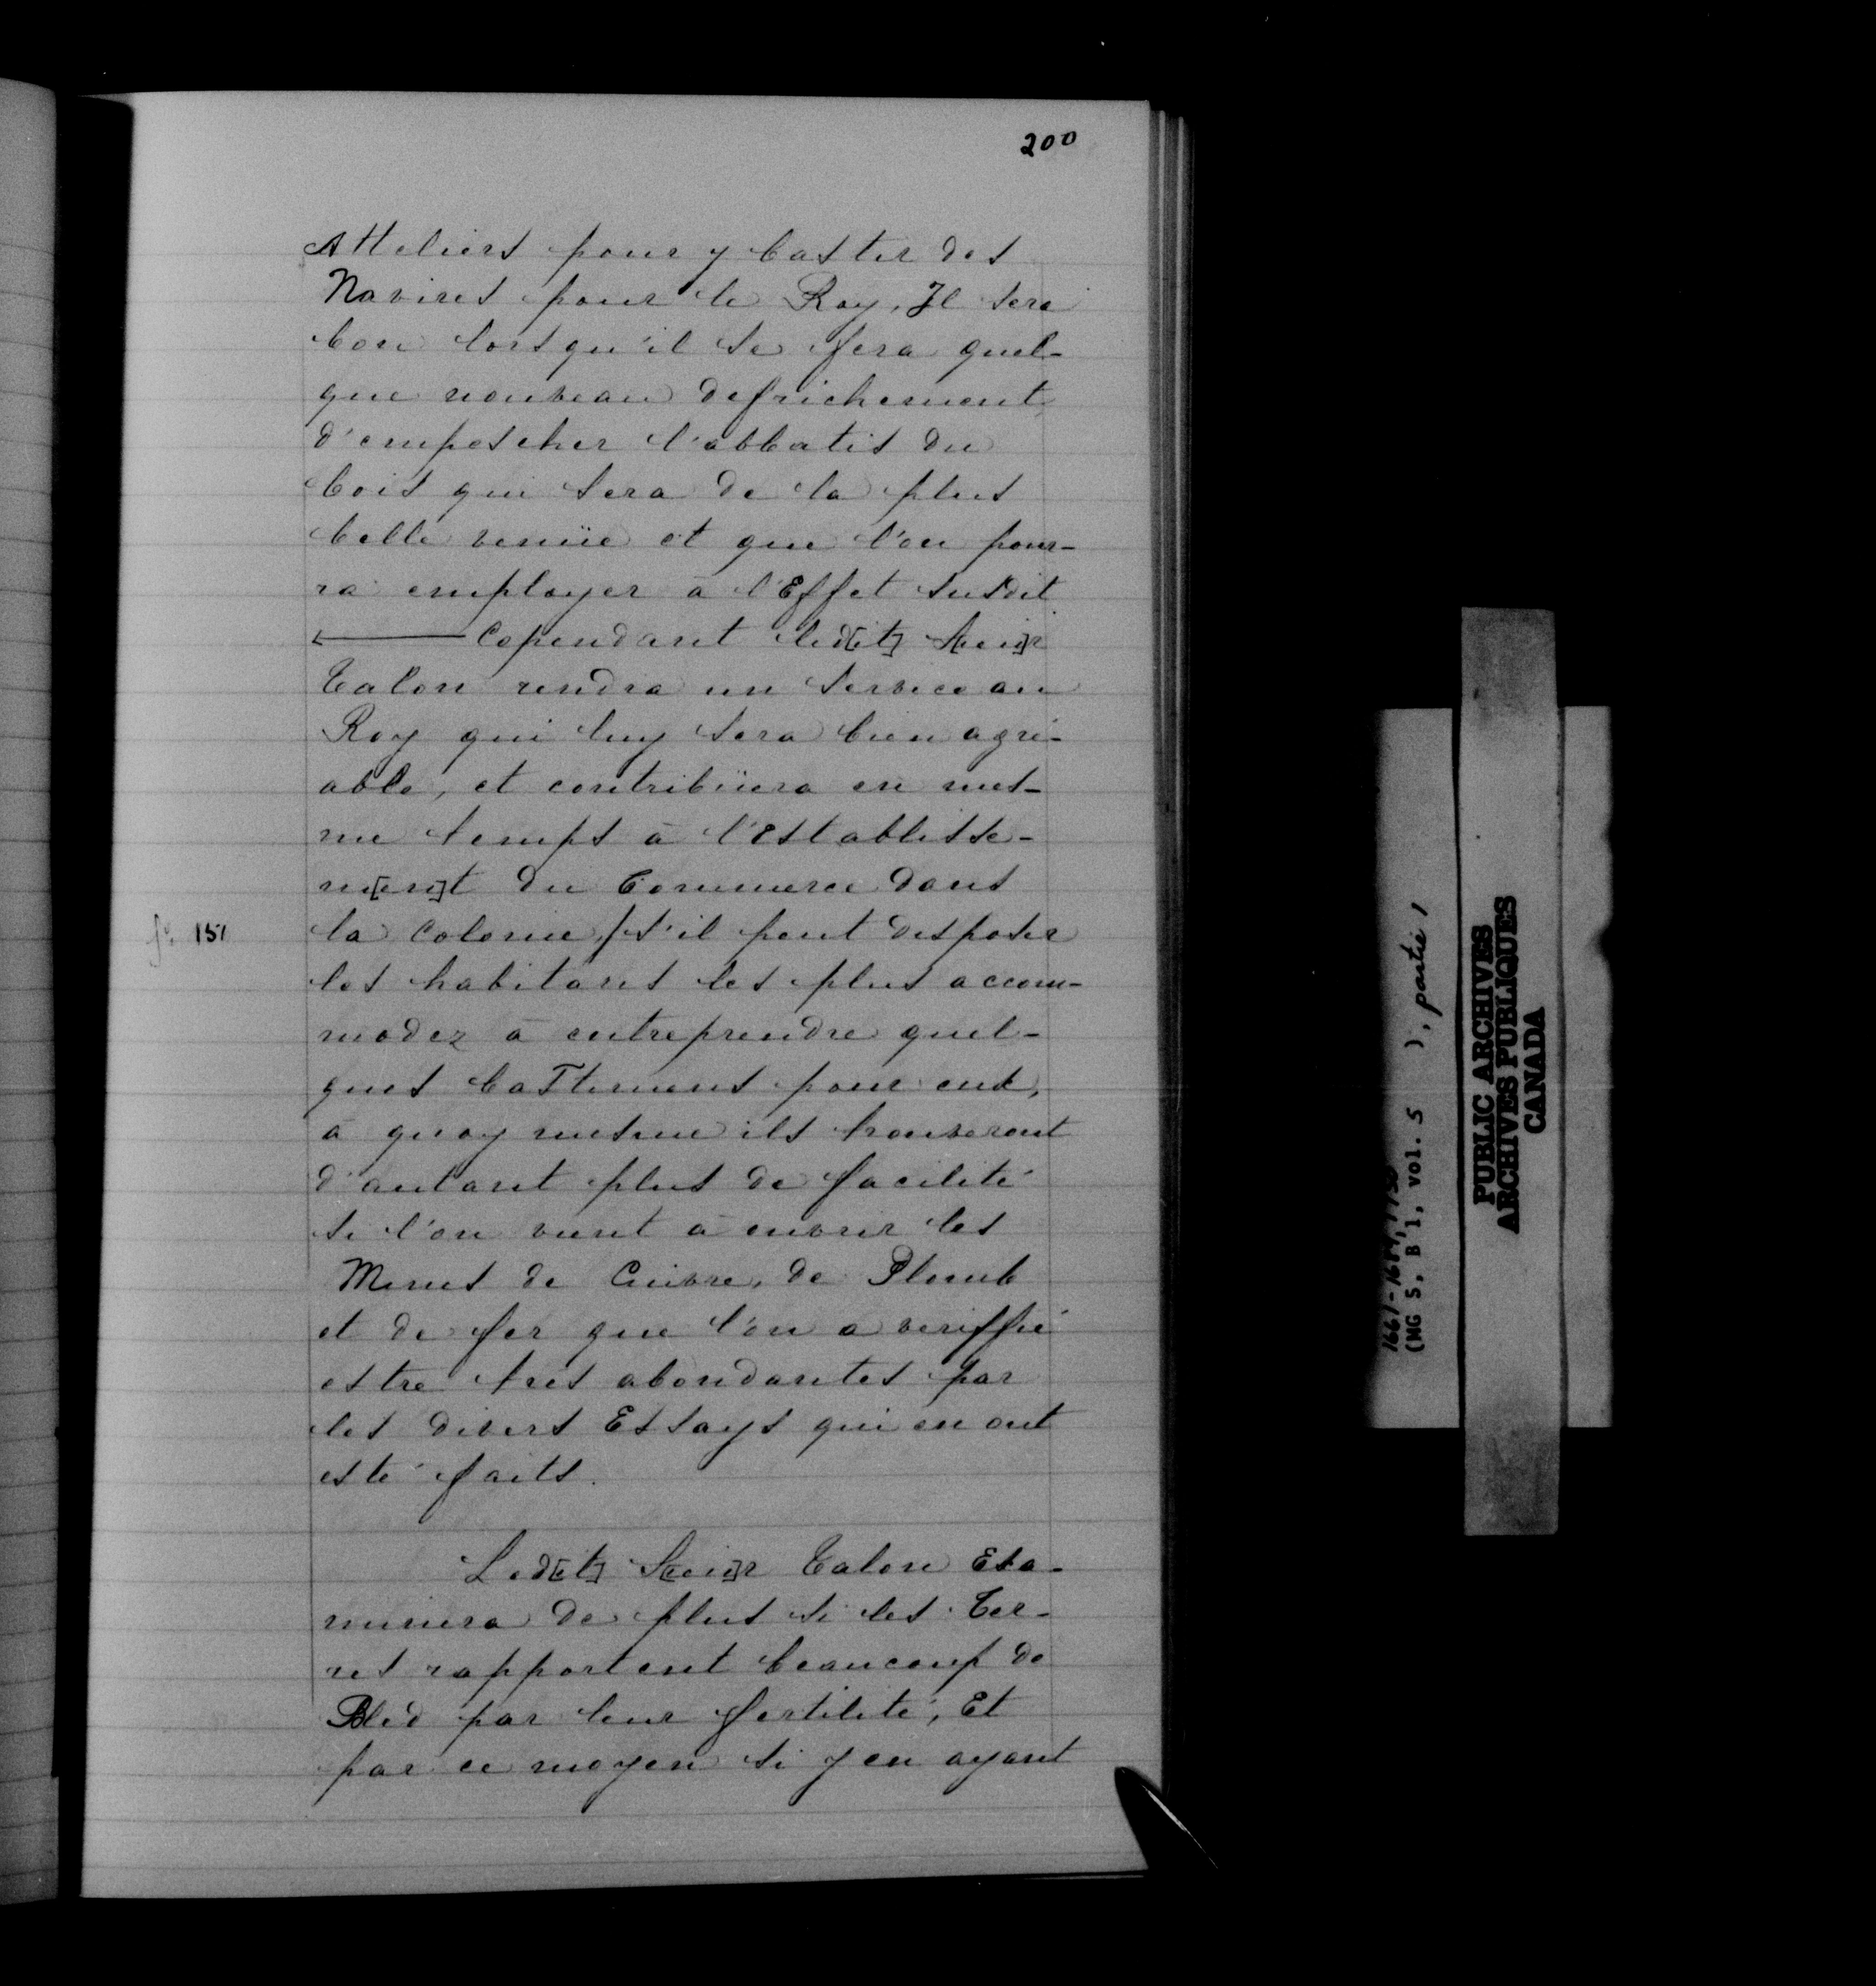 200
Atteliers pour y bastir des
Navires pour le Roy, Il sera
bon lorsqu'il se fera quel-
que nouveau defrichement
d'empescher l'abbatis du
bois qui sera de la plus
belle venüe et que l'on pour-
ra employer à l'Effet susdit
Cependant led[it] S[ieu]r
Talon rendra un service au
Roy qui luy sera bien agré-
able, et contribüera en mes-
me temps à l'Establisse-
m[en]t du Commerce dans
fo 151
la Colonie / s'il peut disposer
les habitans les plus accom-
modez à entreprendre quel-
ques bastimens pour eux,
à quoy mesme ils trouveront
d'autant plus de facilité
si l'on vient à ouvrir les
Mines de Cuivre, de Plomb
et de fer que l'on a veriffié
estre tres abondantes par
les divers Essays qui en ont
esté faits.
Led[it] S[ieu]r Talon Exa-
minera de plus si les Ter-
res rapportent beaucoup de
Bled par leur fertilité, Et
par ce moyen si y en ayant
(MG 5, B 1, vol. 5 ), partie 1
PUBLIC ARCHIVES
ARCHIVES PUBLIQUES
CANADA